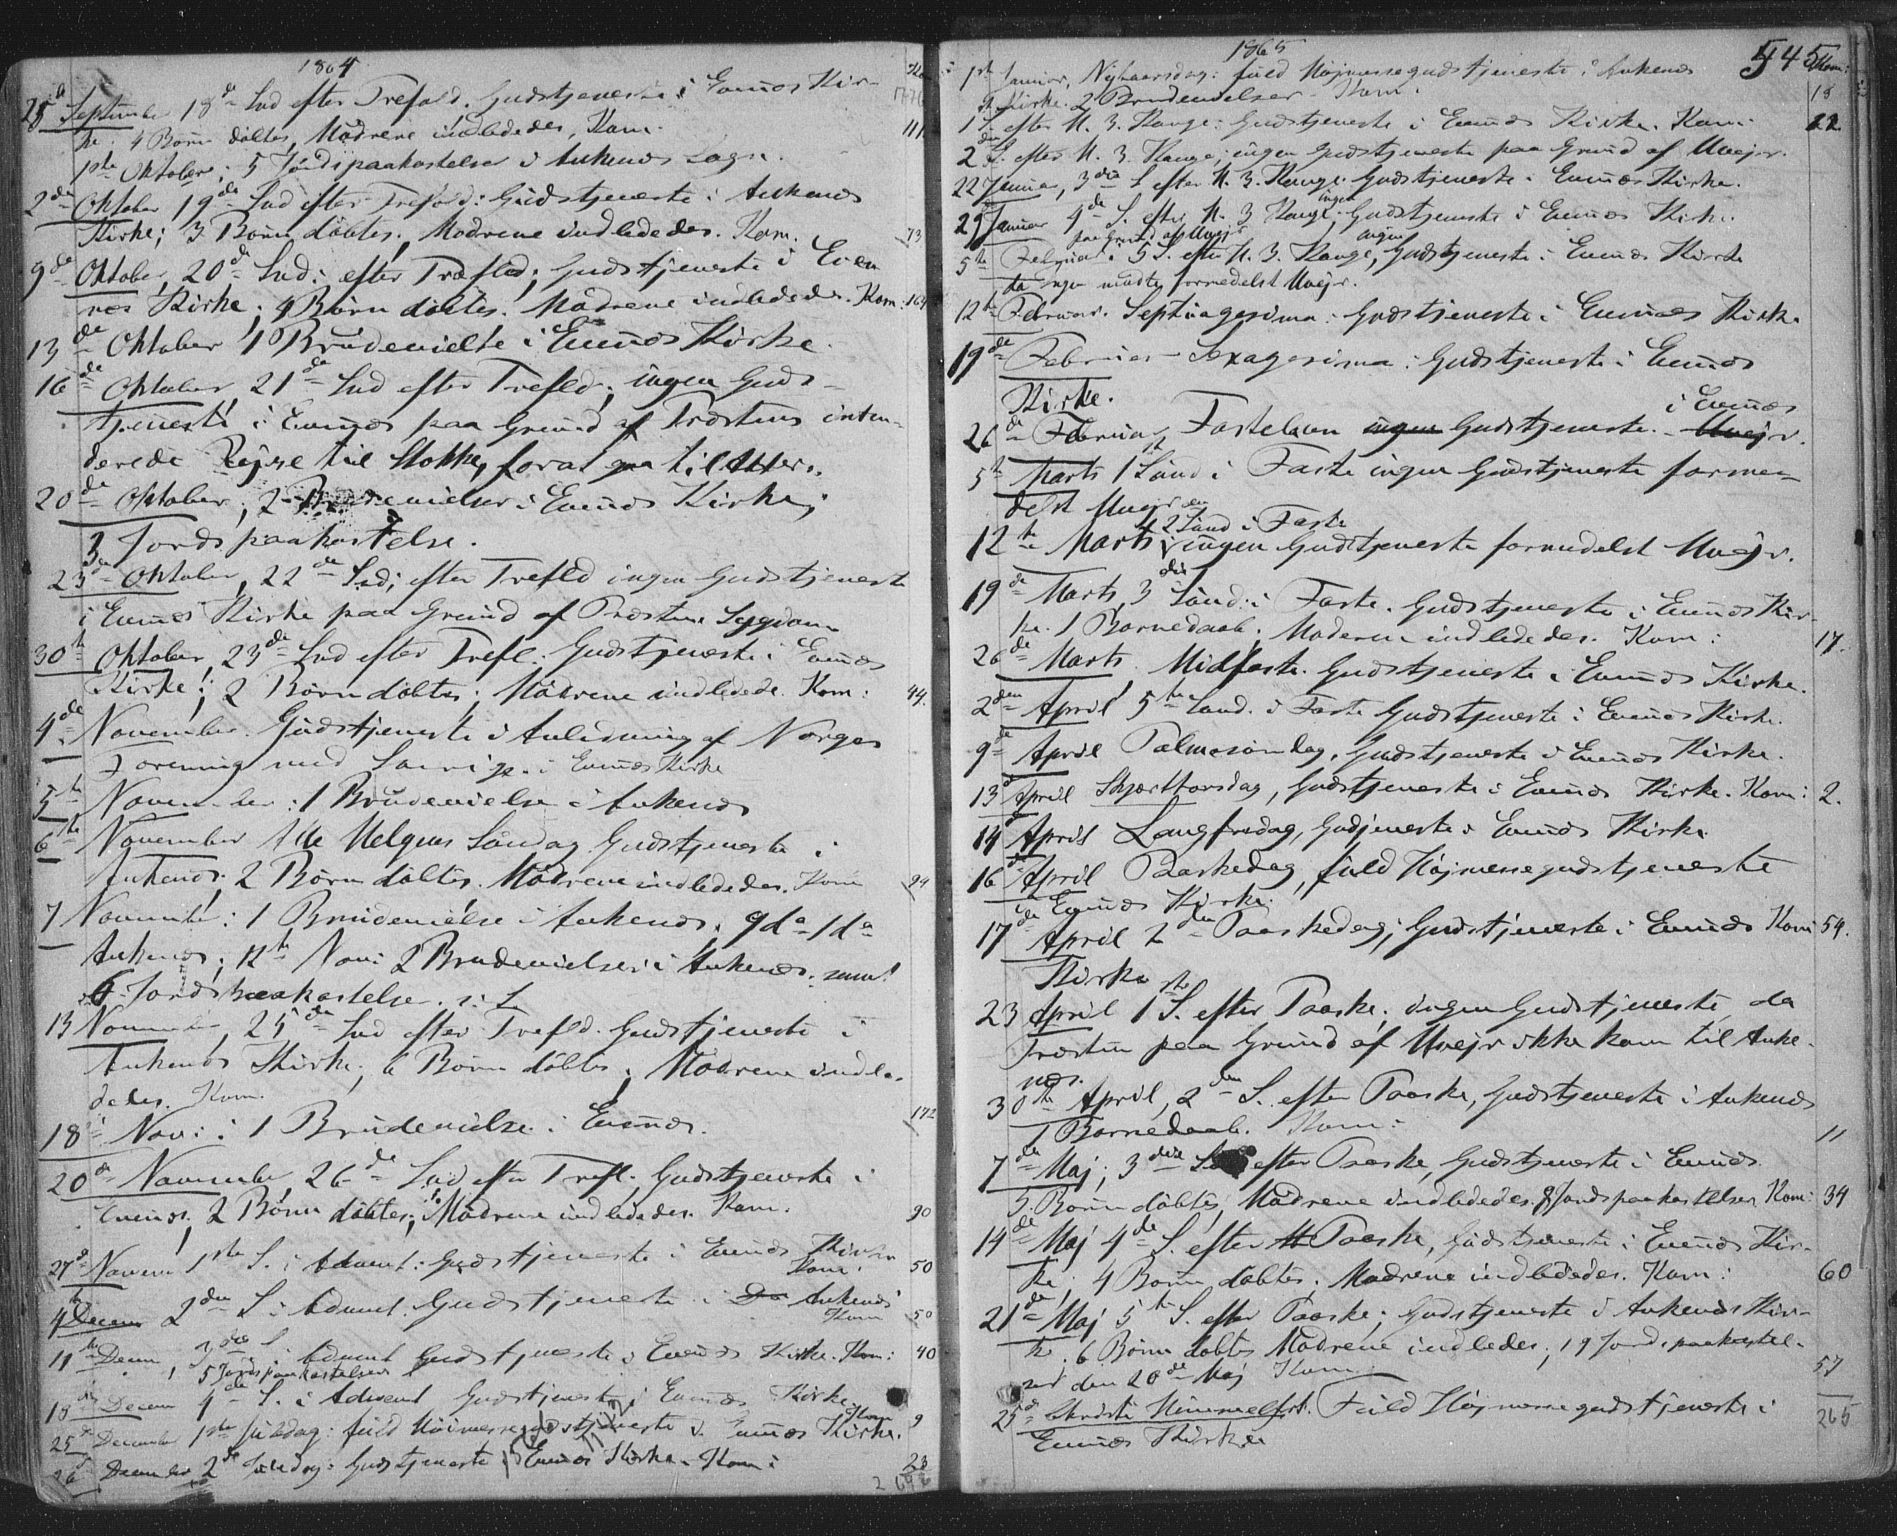 1864
Kom:
25 September 18de Snd efter Trefold. Gudstjeneste i Evenæs Kir-
ke. 4 Børn døbtes, Mødrene indledtes, Kom. 111
1ste Oktober; 5 Jordspaakastelser i Ankenæs Sogn.
2den Oktober 19de Snd efter Trefold: Gudstjeneste i Ankenæs
Kirke; 3 Børn døbtes. Mødrene indlededes. Kom. 73
9de Oktober, 20de Snd: efter Trefld; Gudstjeneste i Even-
næs Kirke; 9 Børn døbtes. Mødrene indlededes. Kom: 164
13de Oktober 1 Brudevielse i Evenæs Kirke.
16de Oktober, 21de Snd efter Trefld; ingen Guds-
tjeneste i Evenæs paa Grund af Præstens inten-
derede Rejse til Stokke, forat gaa til Alters.
20de Oktober, 2 Brudevielser i Evenæs Kirke;
3 Jordspaakastelse.
23de Oktober, 22de Snd; efter Trefld ingen Gudstjeneste
i Evenæs Kirke paa Grund af Præstens Sygdom
30te Oktober, 23de Snd efter Trefl: Gudstjeneste i Evenæs
Kirke; 2 Børn døbtes; Mødrene indledede. Kom: 44.
4de November. Gudstjeneste i Anledning af Norges
Forening med Sverige i Evenæs Kirke
5te November: 1 Brudevielse i Ankenæs
6te November Alle Helgens Søndag Gudstjeneste i
Ankenæs. 2 Børn døbtes. Mødrene indlededes. Kom 94
7 November: 1 Brudevielse i Ankenæs; 9de 1 do
Ankenæs; 12te Nov: 2 Brudevielser i Ankenæs. samt
6 Jordspaakastelse.
13 November, 25de Snd efter Trefld. Gudstjeneste i
Ankenæs Kirke; 6 Børn døbtes; Mødrene indle-
dedes. Kom. 172
18 Nov: 1 Brudevielse i Evenæs.
20de November 26de Snd efter Trefl. Gudstjeneste i
Evenæs. 2 Børn døbtes; Mødrene indlededes. Kom. 90
27de Novem 1ste S. i Advent: Gudstjeneste i Evenæs Kirke
Kom: 50
4de Decem 2den S i Advent. Gudstjeneste i Ankenæs
Kom 50
11te Decem, 3die S. i Advent Gudstjeneste i Evenæs Kirke. Kom: 40
5 Jordspaakastelser
18de Decem 4de S. i Advent Gudstjeneste i Evenæs Kirke
Kom 9
25de December 1ste Juledag: fuld Høimessegudstjeneste i Evenæs Kirke.
26de December 2den Juledag: Gudstjeneste i Evenæs Kirke. Kom: 23
1865
545
Kom:
1ste Januar, Nytaarsdag: fuld Højmessegudstjeneste i Ankenæs
Kirke. 2 Brudevielser Kom. 18
1 S. efter H. 3. Konge: Gudstjeneste i Evenæs Kirke. Kom: 22
2den S. efter H. 3. Konge; ingen Gudstjeneste paa Grund af Uvejr.
22 Januar, 3die S efter H. 3. Konge. Gudstjeneste i Evenæs Kirke.
29 Januar 4de S. efter H. 3 Konge: ingen Gudstjeneste i Evenæs Kirke
paa Grund af Uvejr
5te Februar: 5 S. efter H. 3. Konge, ingen Gudstjeneste i Evenæs Kirke
da ingen mødte formedelst Uvejr.
12te Februar. Septuagesima: Gudstjeneste i Evenæs Kirke
19de Februar Sexagesima: Gudstjeneste i Evenæs
Kirke.
26de Februar Fastelavn ingen Gudstjeneste. i Evenæs Uvejr.
5te Marts 1 Sønd i Faste ingen Gudstjeneste forme-
delst Uvejr
12te Marts, 2den Sønd i Faste ingen Gudstjeneste formedelst Uvejr.
19de Marts, 3die Sønd: i Faste. Gudstjeneste i Evenæs Kir-
ke. 1 Barnedaab. Moderen indlededes. Kom: 17.
26de Marts. Midfaste. Gudstjeneste i Evenæs Kirke.
2den April 5te Sønd. i Faste Gudstjeneste i Evenæs Kirke.
9de April Palmesøndag, Gudstjeneste i Evenæs Kirke.
13de April Skjærthorsdag, Gudstjeneste i Evenæs Kirke. Kom: 2.
14 April Langfredag, Gudjeneste i Evenæs Kirke
16de April Paaskedag, fuld Højmessegudstjeneste
i Evenæs Kirke.
17de April 2den Paaskedag; Gudstjeneste i Evenæs Kom 54.
Kirke
23 April 1ste S. efter Paaske; ingen Gudstjeneste, da
Præsten paa Grund af Uvejr ikke kom til Anke-
næs.
30te April, 2den S. efter Paaske, Gudstjeneste i Ankenæs
1 Barnedaab. Kom: 11
7de Maj; 3die S. efter Paaske, Gudstjeneste i Evenæs.
5. Børn døbtes, Mødrene indlededes, 8 Jordspaakastelser Kom: 34
14de Maj 4de S. efter Paaske, Gudstjeneste i Evenæs Kir-
ke; 4 Børn døbtes. Mødrene indlededes. Kom: 60
21de Maj 5te S. efter Paaske; Gudstjeneste i Ankenæs Kir-
ke. 6 Børn døbtes Mødrene indledes; 19 Jordspaakastel-
ser den 20de Maj Kom 57
25de Christi Himmelfrt. Fuld Højmessegudstjeneste i
Evenæs Kirke
265